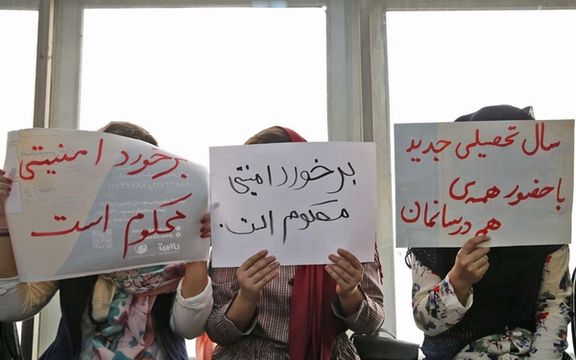 سال تحصیلی جدید
با حضور همه‌ی
همدرسانمان
برخورد امنیتی
محکوم است.
برخورد امنیتی
محکوم است